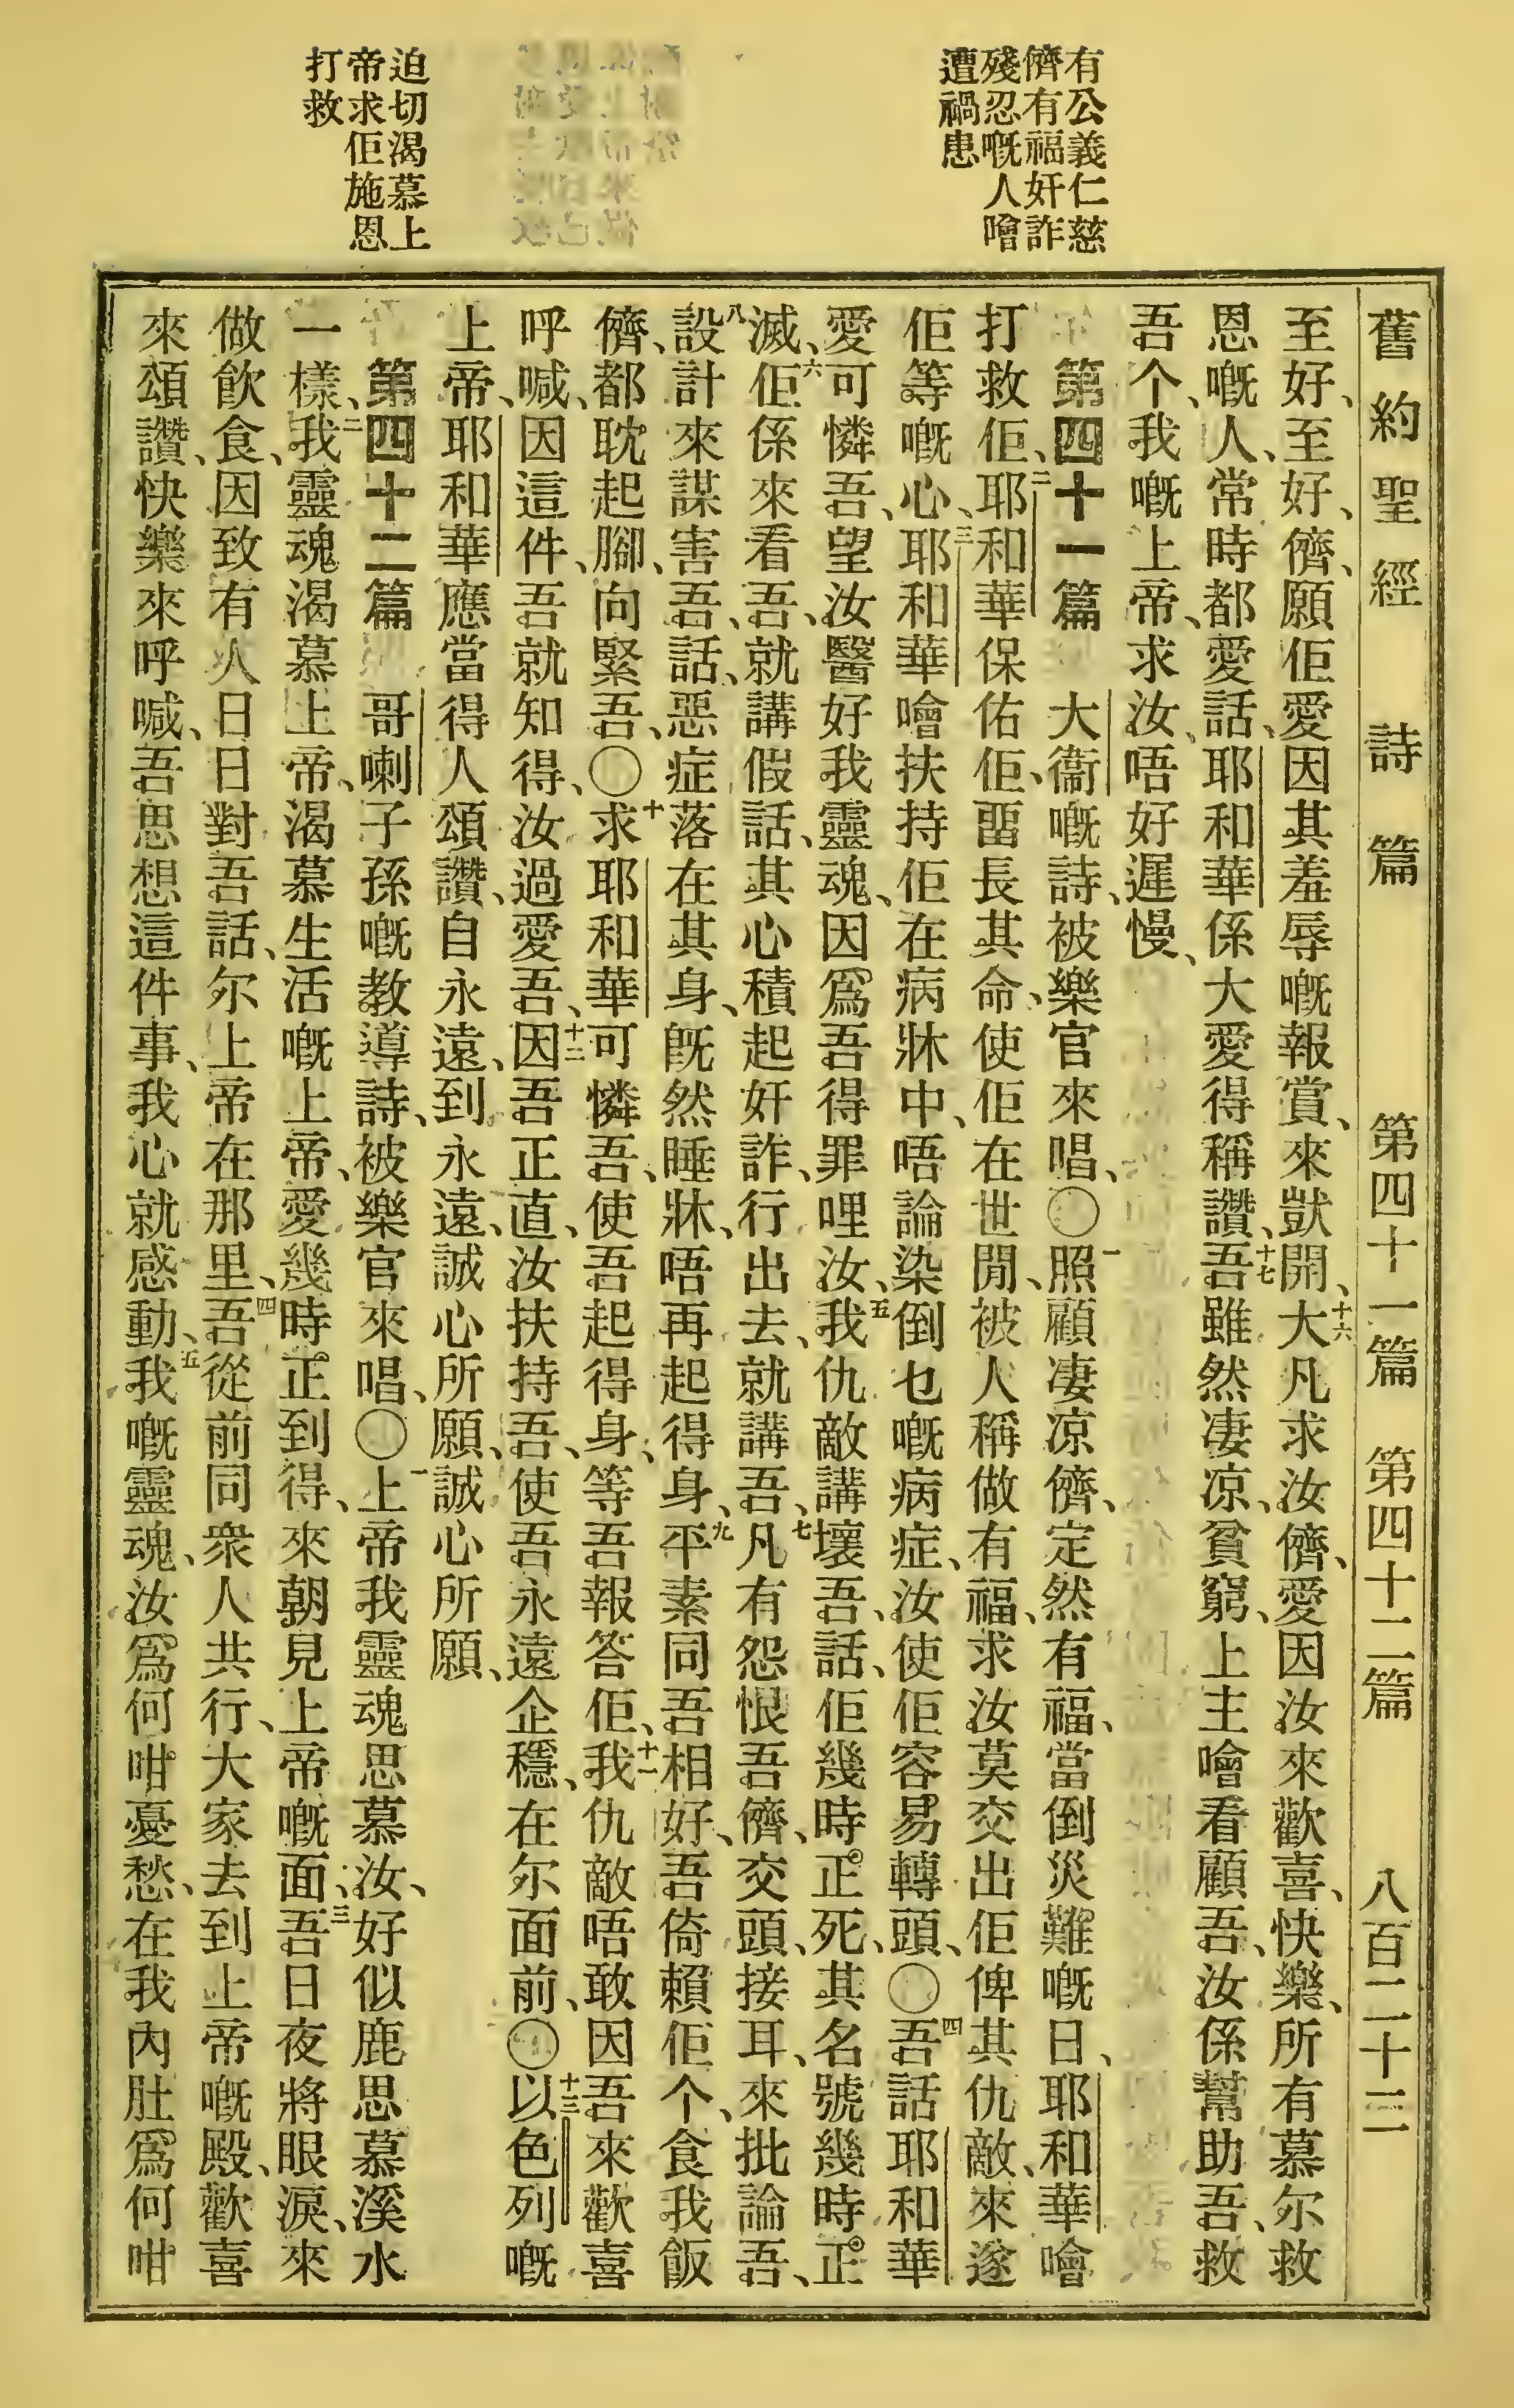 有公義仁慈
儕有福奸詐
殘忍嘅人噲
遭禍患
迫切渴慕上
帝求佢施恩
打救
舊約聖經 詩篇 第四十一篇 第四十二篇 八百二十三
至好、至好、儕、願佢愛因其羞辱嘅報賞、來獃開、十六大凡求汝儕、愛因汝來歡喜、快樂、所有慕尔救
恩嘅人、常時都愛話、耶和華係大愛得稱讚、十七吾雖然凄凉、貧窮、上主噲看顧吾、汝係幫助吾、救
吾个、我嘅上帝、求汝、唔好遲慢、
第四十一篇 大衞嘅詩、被樂官來唱、〇一照顧凄凉儕、定然有福、當倒災難嘅日、耶和華噲
打救佢、二耶和華保佑佢、畱長其命、使佢在世間、被人稱做有福、求汝莫交出佢俾其仇敵、來遂
佢等嘅心、三耶和華噲扶持佢在病牀中、唔論染倒乜嘅病症、汝使佢容易轉頭、〇四吾話耶和華
愛可憐吾、望汝醫好我靈魂、因爲吾得罪哩汝、五我仇敵講壞吾、話、佢幾時正死、其名號幾時正
滅、六佢係來看吾、就講假話、其心積起奸詐、行出去、就講吾、七凡有怨恨吾儕、交頭、接耳、來批論吾、
八設計來謀害吾、話、惡症落在其身、旣然睡牀、唔再起得身、九平素同吾相好、吾倚賴佢个、食我飯
儕、都耽起腳、向緊吾、〇十求耶和華可憐吾、使吾起得身、等吾報答佢、十一我仇敵唔敢因吾來歡喜
呼喊、因這件、吾就知得、汝過愛吾、十二因吾正直、汝扶持吾、使吾永遠企穩、在尔面前、〇十三以色列嘅
上帝、耶和華應當得人頌讚、自永遠、到永遠、誠心所願、誠心所願、
第四十二篇 哥喇子孫嘅教導詩、被樂官來唱、〇一上帝我靈魂思慕汝、好似鹿思慕溪水
一樣、二我靈魂渴慕上帝、渴慕生活嘅上帝、愛幾時正到得、來朝見上帝嘅面、三吾日夜將眼淚、來
做飲食、因致有人日日對吾話、尔上帝在那里、四吾從前同衆人共行、大家去到上帝嘅殿、歡喜
來頌讚、快樂來呼喊、吾思想這件事、我心就感動、五我嘅靈魂、汝爲何咁憂愁、在我內肚爲何咁